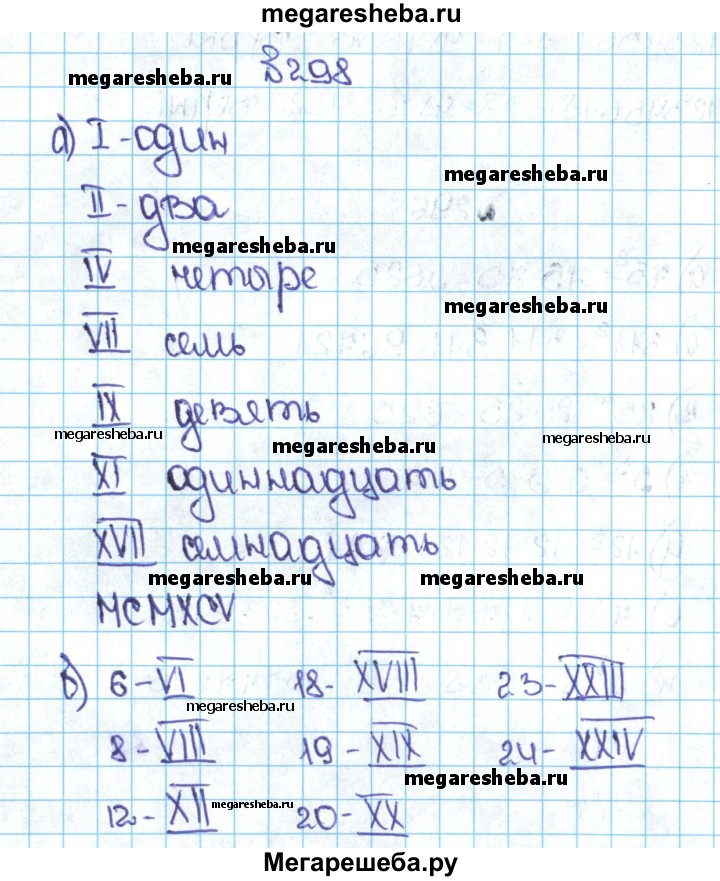 megaresheba.ru
В 298
megaresheba.ru
а) I - один
megaresheba.ru
II - два
megaresheba.ru
IV четыре
megaresheba.ru
VII семь
IX девять
megaresheba.ru
megaresheba.ru
megaresheba.ru
XI одиннадцать
XVII семнадцать
megaresheba.ru
megaresheba.ru
MCMXCV
б) 6 - VI 18 - XVIII 23 - XXIII
megaresheba.ru
8 - VIII 19 - XIX 24 - XXIV
megaresheba.ru
12 - XII 20 - XX
megaresheba.ru
Мегарешеба.ру